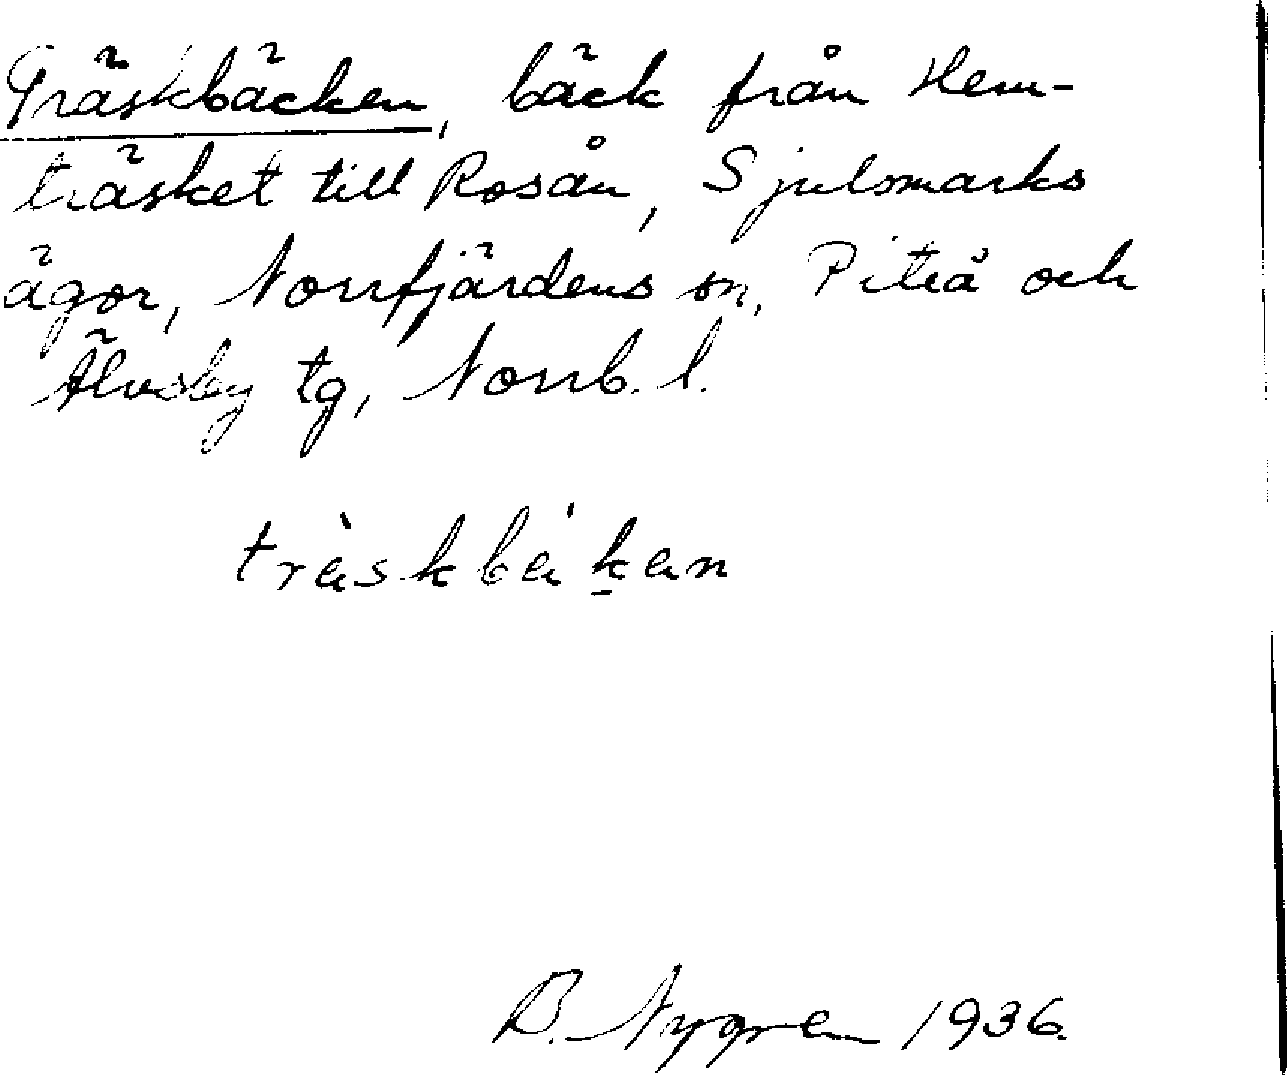 Träskbäcken, bäck från Hem-
träsket till Rosån, Sjulsmarks
ägor, Norrfjärdens sn, Piteå och
Älvsby tg, Norrb. l.
tràskbákan
B. Nygren 1936.